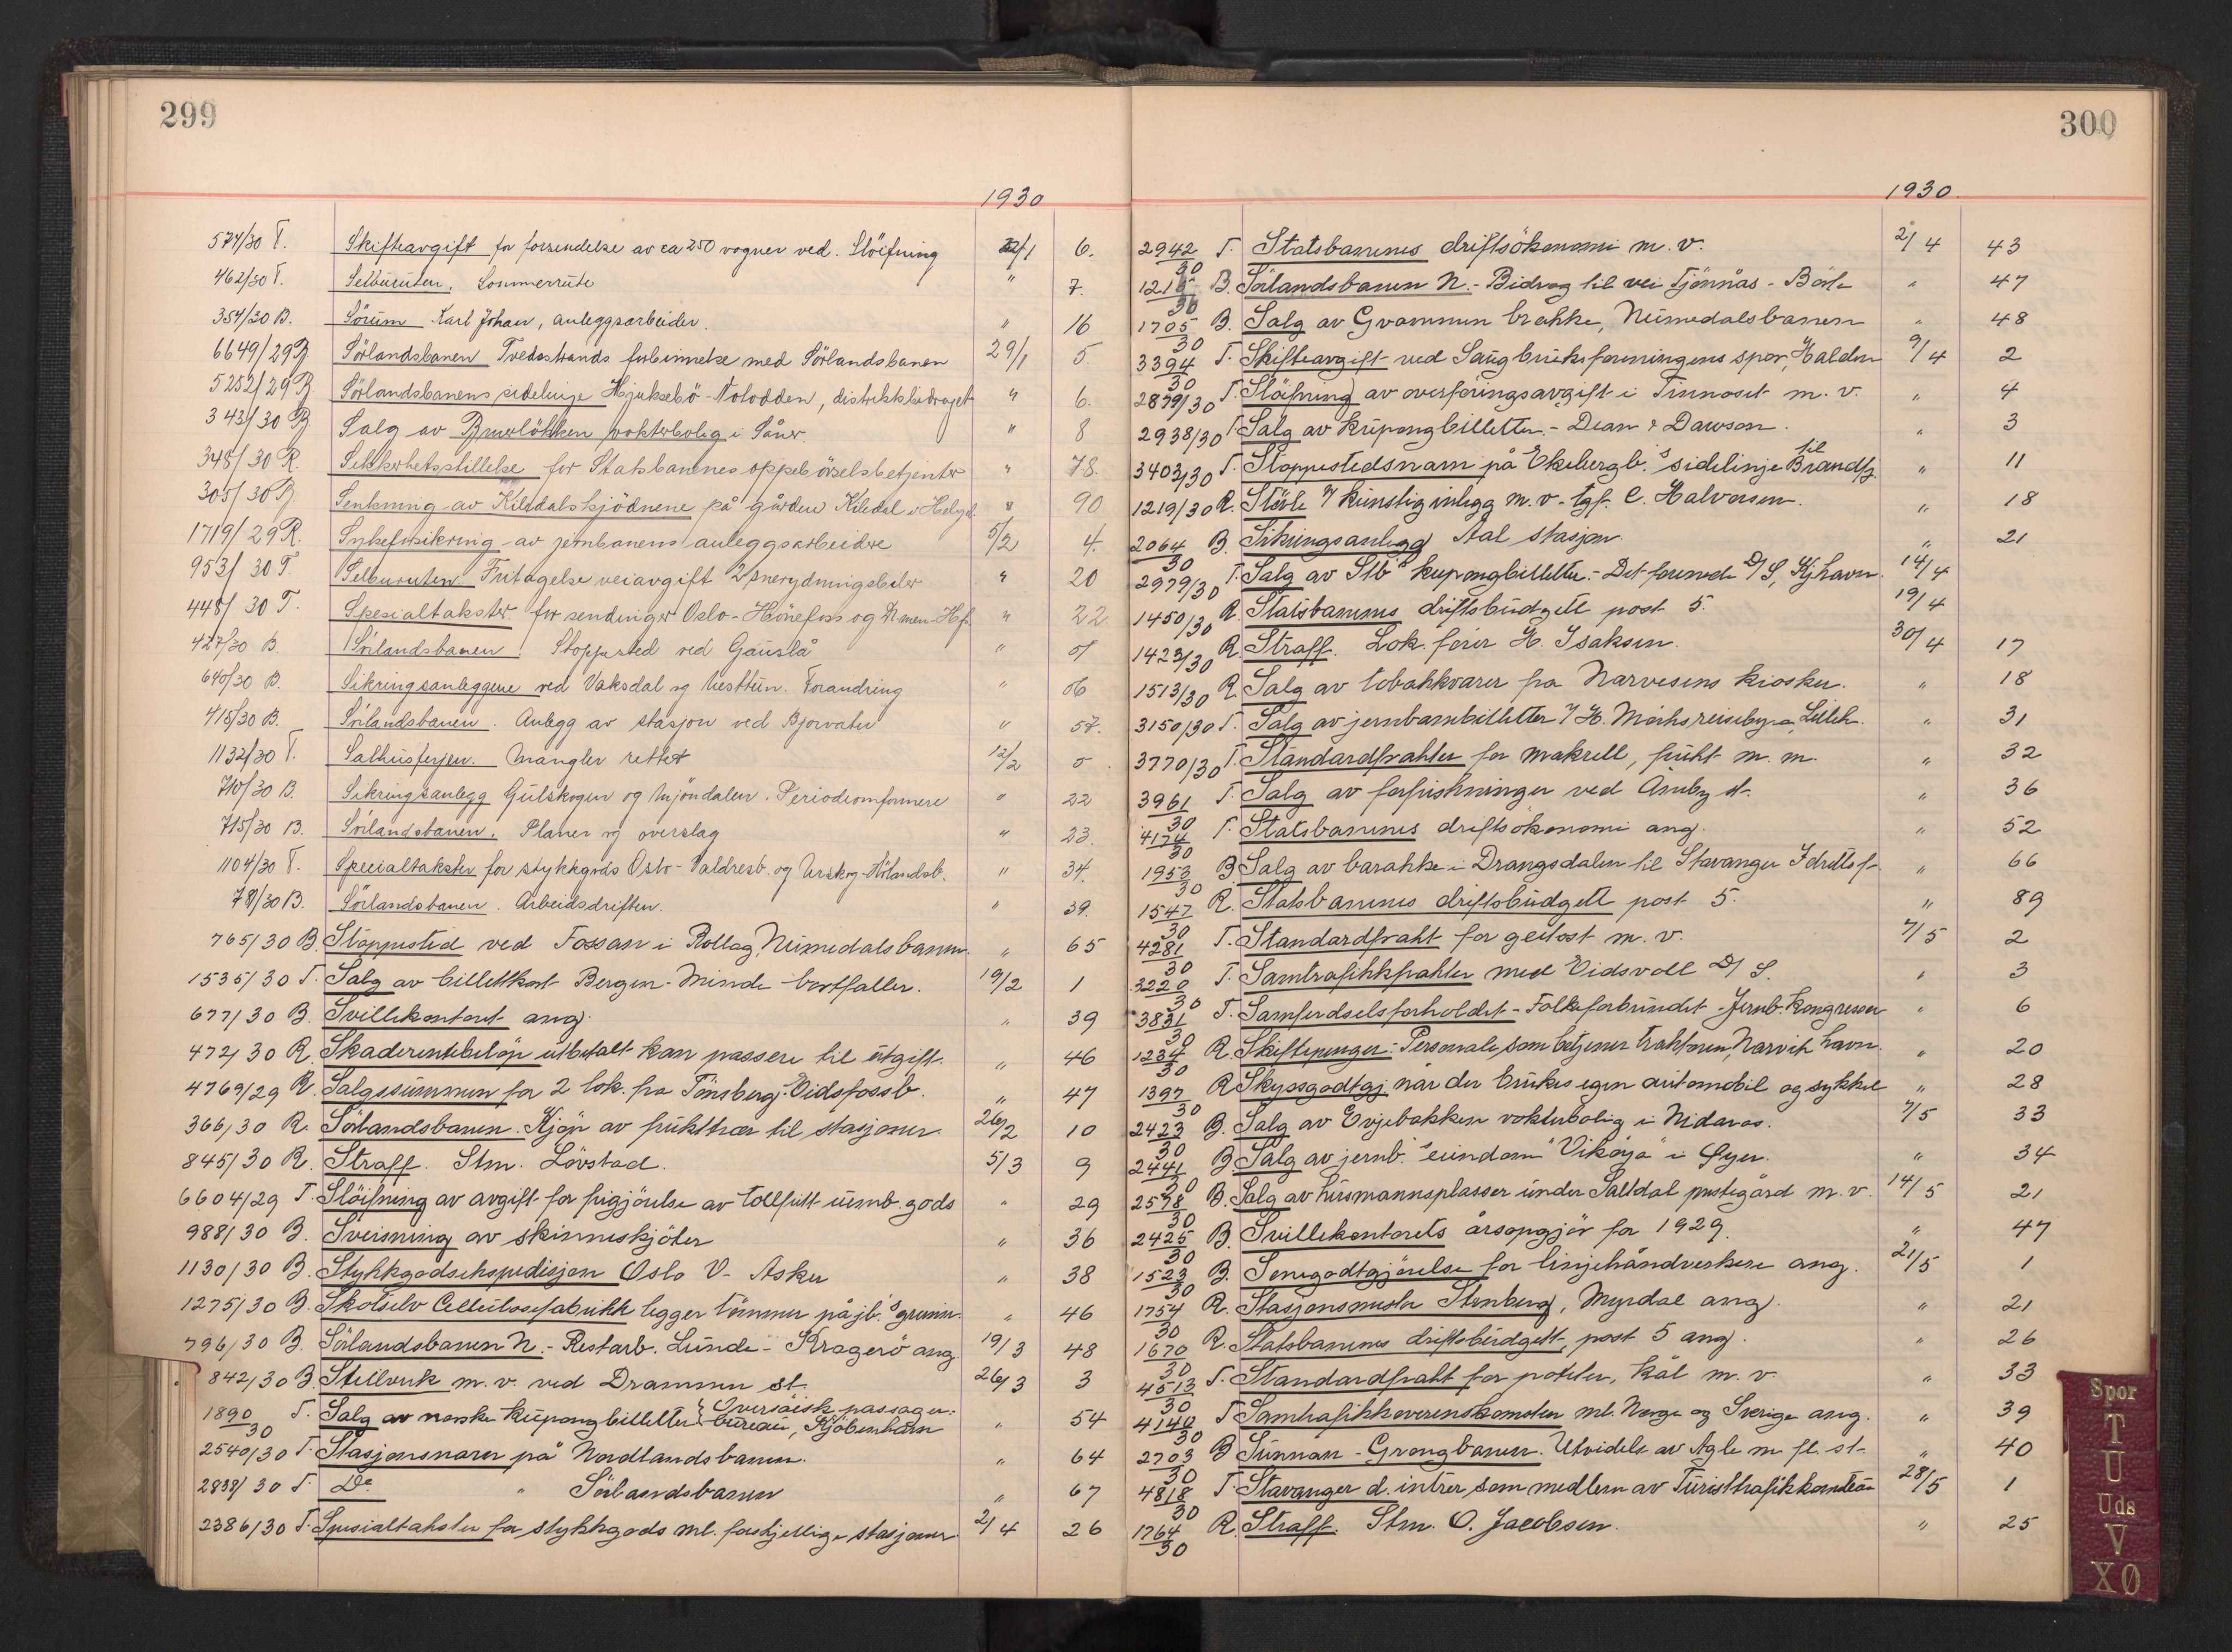 299
1930
574/30 T. Skifteavgift for forsendelse av ca 250 vogner ved. Slöifning 22/1 6.
462/30 T. Selburuten. Sommerrute " 7.
354/30 B. Sörum Karl Johan, anleggsarbeider. " 16
6649/29 B Sörlandsbanen Tvedestrands forbinnelse med Sörlandsbanen 29/1 5
5252/29 B Sörlandsbanens sidelinje Hjuksebö-Notodden, distriktsbidraget " 6.
343/30 B Salg av Bruerlökken vokterbolig i Såner. " 8
348/30 R. Sikkerhetsstillelse for Statsbanenes oppebörselsbetjenter " 78.
305/30 B. Senkning av Kiledalskjödnene på gården Kiledal i " 90
1719/29 R. Sykeforsikring av jernbanens anleggsarbeidere 5/2 4.
953/30 T Selburuten Fritagelse veiavgift 2 snerydningsbiler " 20
448/30 T. Spesialtakster for sendinger Oslo-Hönefoss og Dmmen-Hf. " 22
427/30 B. Sörlandsbanen. Stoppested ved Gauslå "
640/30 B. Sikringsanleggene ved Vaksdal og Nesttun. Forandring "
415/30 B. Sörlandsbanen. Anlegg av stasjon ved Bjorvatn " 57.
1132/30 T. Salhusferjen. Mangler rettet 12/2
710/30 B. Sikringsanlegg Gulskogen og Mjöndalen. Periodeomformere " 22
715/30 B. Sörlandsbanen. Planer og overslag " 23.
1104/30 T. Specialtakster for stykkgods Oslo-Valdresb. og Urskog-Hölandsb. " 34.
78/30 B. Sörlandsbanen. Arbeidsdriften. " 39.
765/30 B. Stoppested ved Fossan i Rollag, Numedalsbanen. " 65
1535/30 T. Salg av billettkort Bergen-Minde bortfaller. 19/2 1
677/30 B. Svillekontoret ang. " 39
472/30 R. Skaderentebelöp utbetalt kan passere til utgift. " 46
4769/29 R. Salgssummen for 2 lok. fra Tönsberg-Eidsfossb. " 47
366/30 R. Sörlandsbanen. Kjöp av frukttrær til stasjoner. 26/2 10
845/30 R. Straff. Stm. Lövstad. 5/3 9
6604/29 T. Slöifning av avgift for frigjörelse av tollfritt innb. gods " 29
988/30 B. Sveisning av skinneskjöter " 36
1130/30 B. Stykkgodsekspedisjon Oslo V- Asker " 38
1275/30 B. Skotselv Cellulosefabrikk legger tömmer på jb.s grunn. " 46
796/30 B. Sörlandsbanen N.- Restarb. Lunde - Kragerö ang 19/3 48
842/30 B. Stillverk m.v. ved Drammen st. 26/3 3
1890/30 T. Salg av norske kupongbilletter { Oversöisk passager-bureau, Kjöbenhavn " 54
2540/30 T. Stasjonsnavn på Nordlandsbanen. " 64
2838/30 T. Do " Sörlandsbanen " 67
2386/30 T. Spesialtakster for stykkgods ml. forskjellige stasjoner 2/4 26
300
1930.
2942/30 T. Statsbanenes driftsökonomi m.v. 2/4 43
1215/30 B. Sörlandsbanen N.- Bidrag til vei Tjönnås - " 47
1705/30 B. Salg av Gvammen brakke, Numedalsbanen " 48
3394/30 T. Skifteavgift ved Saugbruksforeningens spor, Halden 9/4 2
2879/30 T. Slöifning av overföringsavgift i Tinnoset m.v. " 4
2938/30 T Salg av kupongbilletter.- Dean & Dawson. " 3
3403/30 T. Stoppestedsnavn på Ekebergb.s sidelinje til Brandfj. " 11
1219/30 R. Stövle m/ kunstig innlegg m.v. - tgf. C. Halvorsen. " 18
2064/30 B. Sikringsanlegg Aal stasjon. " 21
2979/30 T. Salg av Stb's kupongbilletter.- Det forenede D/S, Kjhavn. 14/4
1450/30 R. Statsbanenes driftsbudgett post 5. 19/4
1423/30 R. Straff. Lok.förer H. Isaksen. 30/4 17
1513/30 R. Salg av tobakkvarer fra Narvesens kiosker. " 18
3150/30 T. Salg av jernbanebilletter i H. Mörks reisebyrå, Lilleh. " 31
3770/30 T. Standardfrakter for makrell, frukt m.m. " 32
3961/30 T. Salg av forfriskninger ved Aneby st. " 36
4174/30 T. Statsbanenes driftsökonomi ang. " 52
1953/30 B. Salg av barakke i Drangsdalen til Stavanger Idrettsf. " 66
1547/30 R. Statsbanenes driftsbudgett post 5. " 89
4281/30 T. Standardfrakt for geitost m.v. 7/5 2
3220/30 T. Samtrafikkfrakter med Eidsvoll D/S. " 3
3831/30 T. Samferdselsforholdet - Folkeforbundet - Jernb.kongressen " 6
1234/30 R. Skiftepenger: Personale, som betjener traktoren, Narvik havn. " 20
1397/30 R Skyssgodtgj. når der brukes egen automobil og sykkel " 28
2423/30 B. Salg av Evjebakken vokterbolig i Nidaros. 7/5 33
2441/30 B. Salg av jernb.s eiendom "Vikøya" i Øyer. " 34
2578/30 B. Salg av husmannsplasser under Saltdal prestegård m.v. 14/5 21
2425/30 B. Svillekontorets årsopgjör for 1929. " 47
1523/30 B. Sonegodtgjörelse for linjehåndverkere ang. 21/5 1
1754/30 R. Stasjonsmester Stenberg, Myrdal ang. " 21
1670/30 R. Statsbanenes driftsbudgett, post 5 ang. " 26
4513/30 T. Standardfrakt for poteter, kål m.v. " 33
4140/30 T Samtrafikkoverenskomsten ml. Norge og Sverige ang. " 39
2703/30 B Sunnan - Grongbanen. Utvidelse av Agle m.fl. st. " 40
4818/30 T. Stavanger d. intrer som medlem av Turisttrafikkomitéen 28/5 1
1764/30 R. Straff. Stm. O. Jacobsen. " 25
Spor
T
U
Uds
V
XØ